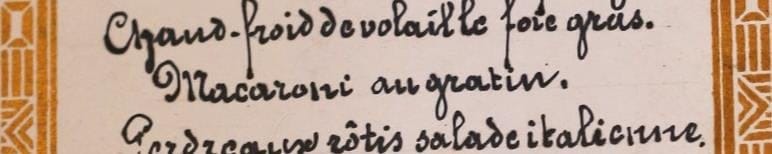 Chaud-froid de volaille foie gras.
Macaroni au gratin.
Perdreaux rôtis salade italienne.